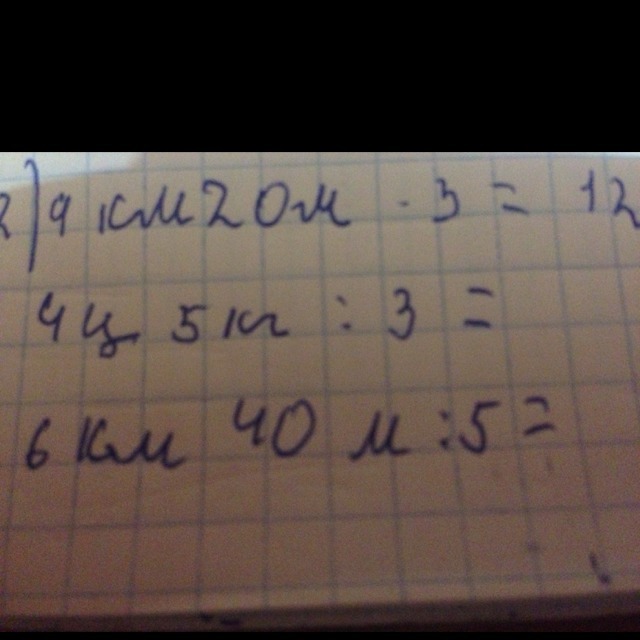 2) 4 км 20 м · 3 = 12
4 ц 5 кг : 3 =
6 км 40 м : 5 =